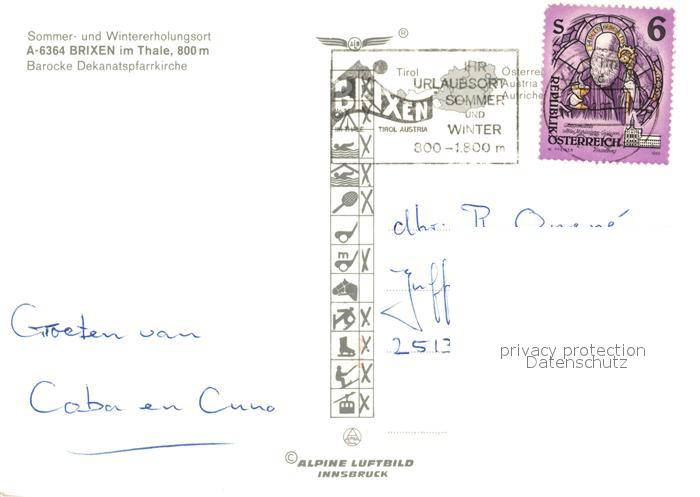 Sommer- und Wintererholungsort
A-6364 BRIXEN im Thale, 800 m
Barocke Dekanatspfarrkirche
®
Tirol
Österreich
Austria
Autriche
BRIXEN
IM THALE TIROL AUSTRIA
IHR
URLAUBSORT
SOMMER
UND
WINTER
800-1.800 m
S 6
REPUBLIK
ÖSTERREICH
dhr. R.
2513
Groeten van
Coba en Cuno
privacy protection
Datenschutz
© ALPINE LUFTBILD
INNSBRUCK